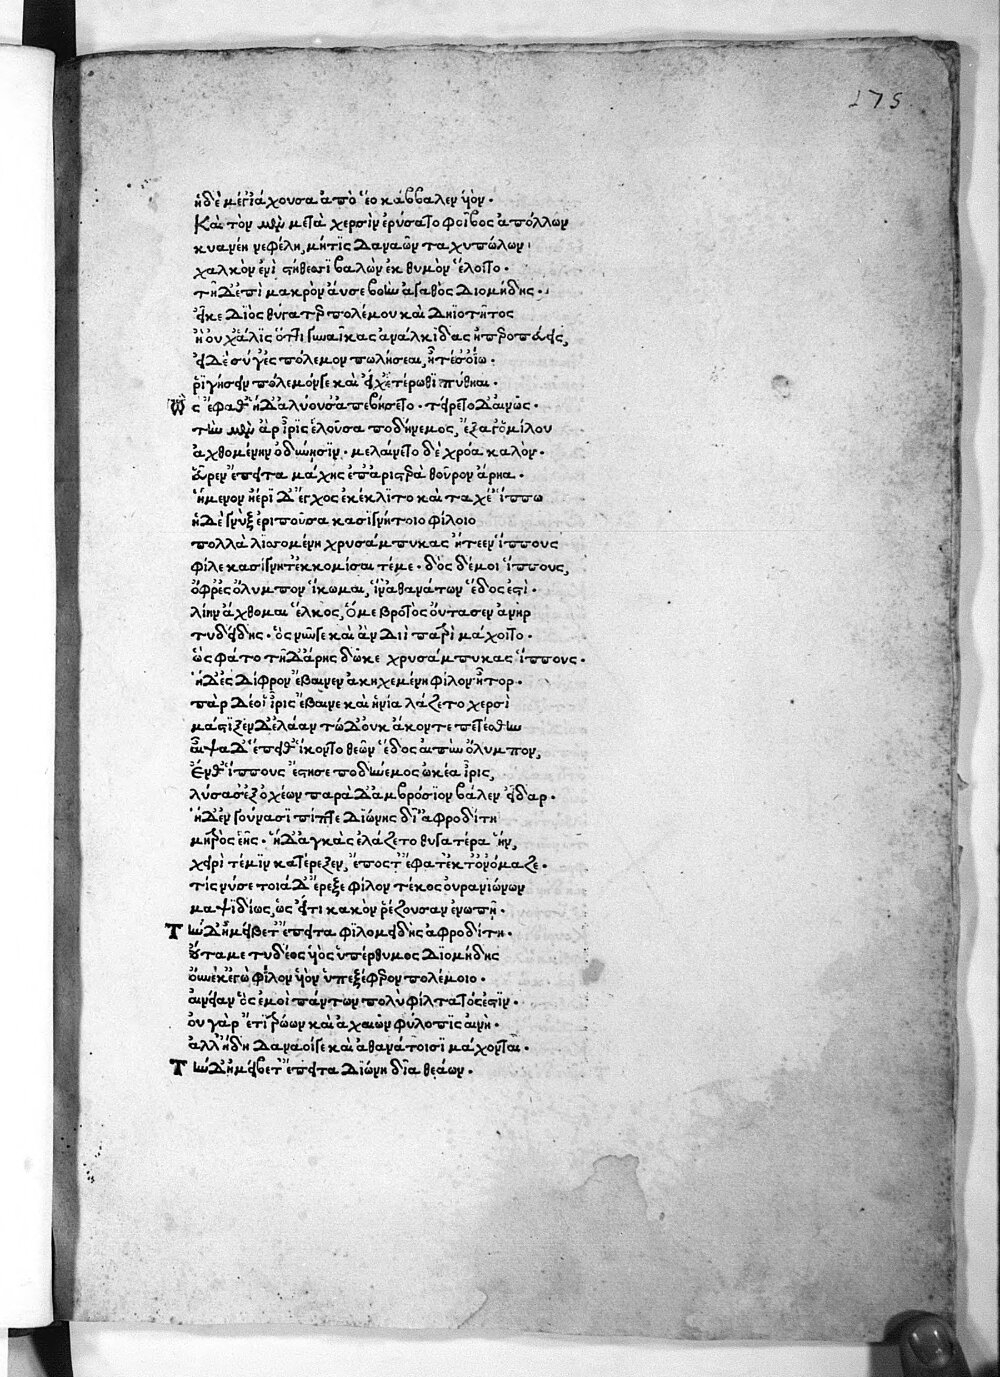 175
ἡ δὲ μέγ' ἰάχουσα ἀπὸ ἕο κάββαλεν υἱόν·
Καὶ τὸν μὲν μετὰ χερσὶν ἐρύσατο φοῖβος ἀπόλλων
κυανέη νεφέλη, μή τις Δαναῶν ταχυπώλων
χαλκὸν ἐνὶ στήθεσσι βαλὼν ἐκ θυμὸν ἕλοιτο·
τῆ Δ' ἐπὶ μακρὸν ἄυσε βοὴν ἀγαθὸς Διομήδης·
εἶκε Διὸς θύγατερ πολέμου καὶ Δηϊοτῆτος
ἢ οὐχ ἅλις ὅττι γυναῖκας ἀνάλκιδας ἠπεροπεύεις,
εἰ Δὲ σύ γ' ἐς πόλεμον πωλήσεαι, ἦ τέ σ' ὀΐω·
ῥιγήσειν πόλεμόν γε καὶ εἴ χ' ἑτέρωθι πύθηαι·
Ὣς ἔφαθ' ἡ Δ' ἀλύουσ' ἀπεβήσετο· τείρετο Δ' αἰνῶς·
τὴν μὲν ἄρ' ἶρις ἑλοῦσα ποδήνεμος, ἔξαγ' ὁμίλου
ἀχθομένην ὀδύνησιν· μελαίνετο δὲ χρόα καλόν·
εὗρεν ἔπειτα μάχης ἐπ' ἀριστερὰ θοῦρον ἄρηα·
ἥμενον ἠέρι Δ' ἔγχος ἐκέκλιτο καὶ ταχέ' ἵππω
ἡ Δὲ γνὺξ ἐριποῦσα κασιγνήτοιο φίλοιο
πολλὰ λισσομένη χρυσάμπυκας ἤτεεν ἵππους
φίλε κασίγνητ' ἐκκόμισαί τέ με· δὸς δέ μοι ἵππους,
ὄφρ' ἐς ὄλυμπον ἵκωμαι, ἵν' ἀθανάτων ἕδος ἐστί·
λίην ἄχθομαι ἕλκος, ὅ με βροτὸς οὔτασεν ἀνὴρ
τυδείδης· ὃς νῦν γε καὶ ἂν Διὶ πατρὶ μάχοιτο·
ὣς φάτο τῆ Δ' ἄρης δῶκε χρυσάμπυκας ἵππους·
ἡ Δ' ἐς Δίφρον ἔβαινεν ἀκηχεμένη φίλον ἦτορ·
πὰρ Δέ οἱ ἶρις ἔβαινε καὶ ἡνία λάζετο χερσὶ
μάστιξεν Δ' ἐλάαν τὼ Δ' οὐκ ἄκοντε πετέσθην
αἶψα Δ' ἔπειθ' ἵκοντο θεῶν ἕδος αἰπὺν ὄλυμπον,
ἔνθ' ἵππους ἔστησε ποδήνεμος ὠκέα ἶρις,
λύσασ' ἐξ ὀχέων παρὰ Δ' ἀμβρόσιον βάλεν εἶδαρ·
ἡ Δ' ἐν γούνασι πίπτε Διώνης δῖ' ἀφροδίτη
μητρὸς ἑῆς· ἡ Δ' ἀγκὰς ἐλάζετο θυγατέρα ἥν,
χειρί τέ μιν κατέρεξεν, ἔπος τ' ἔφατ' ἔκ τ' ὀνόμαζε·
τίς νύ σε τοιάδ' ἔρεξε φίλον τέκος οὐρανιώνων
μαψιδίως, ὡς εἴ τι κακὸν ῥέζουσαν ἐνωπῆ·
Τὴν Δ' ἠμείβετ' ἔπειτα φιλομειδὴς ἀφροδίτη·
οὖτά με τυδέος υἱὸς ὑπέρθυμος Διομήδης
οὕνεκ' ἐγὼ φίλον υἱὸν ὑπεξέφερον πολέμοιο·
αἰνείαν ὃς ἐμοὶ πάντων πολὺ φίλτατός ἐστιν·
οὐ γὰρ ἔτι τρώων καὶ ἀχαιῶν φύλοπις αἰνή·
ἀλλ' ἤδη Δαναοί γε καὶ ἀθανάτοισι μάχονται·
Τὴν Δ' ἠμείβετ' ἔπειτα Διώνη δῖα θεάων·